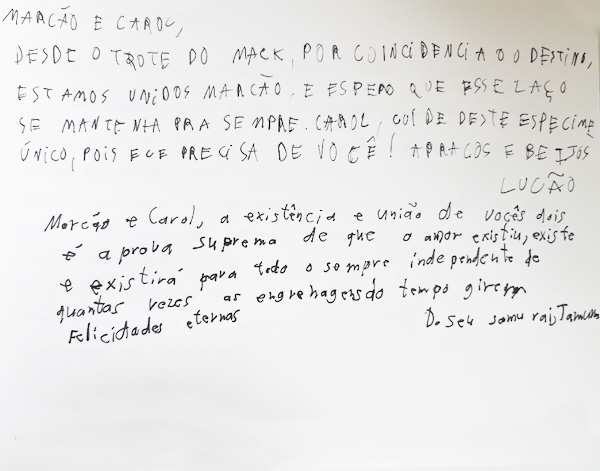 MARCÃO E CAROL,
DESDE O TROTE DO MACK, POR COINCIDENCIA OO DESTINO,
ESTAMOS UNIDOS MARCÃO. E ESPERO QUE ESSE LAÇO
SE MANTENHA PRA SEMPRE. CAROL, CUIDE DESTE ESPECIME
ÚNICO, POIS ELE PRECISA DE VOCÊ! APRAÇOS E BEIJOS
LUCÃO
Marcão e Carol, a existência e união de voçês dois
é a prova suprema de que o amor existiu, existe
e existirá para todo o sempre independente de
quantas vezes as engrenagens do tempo girem
Felicidades eternas
Do seu samurai,